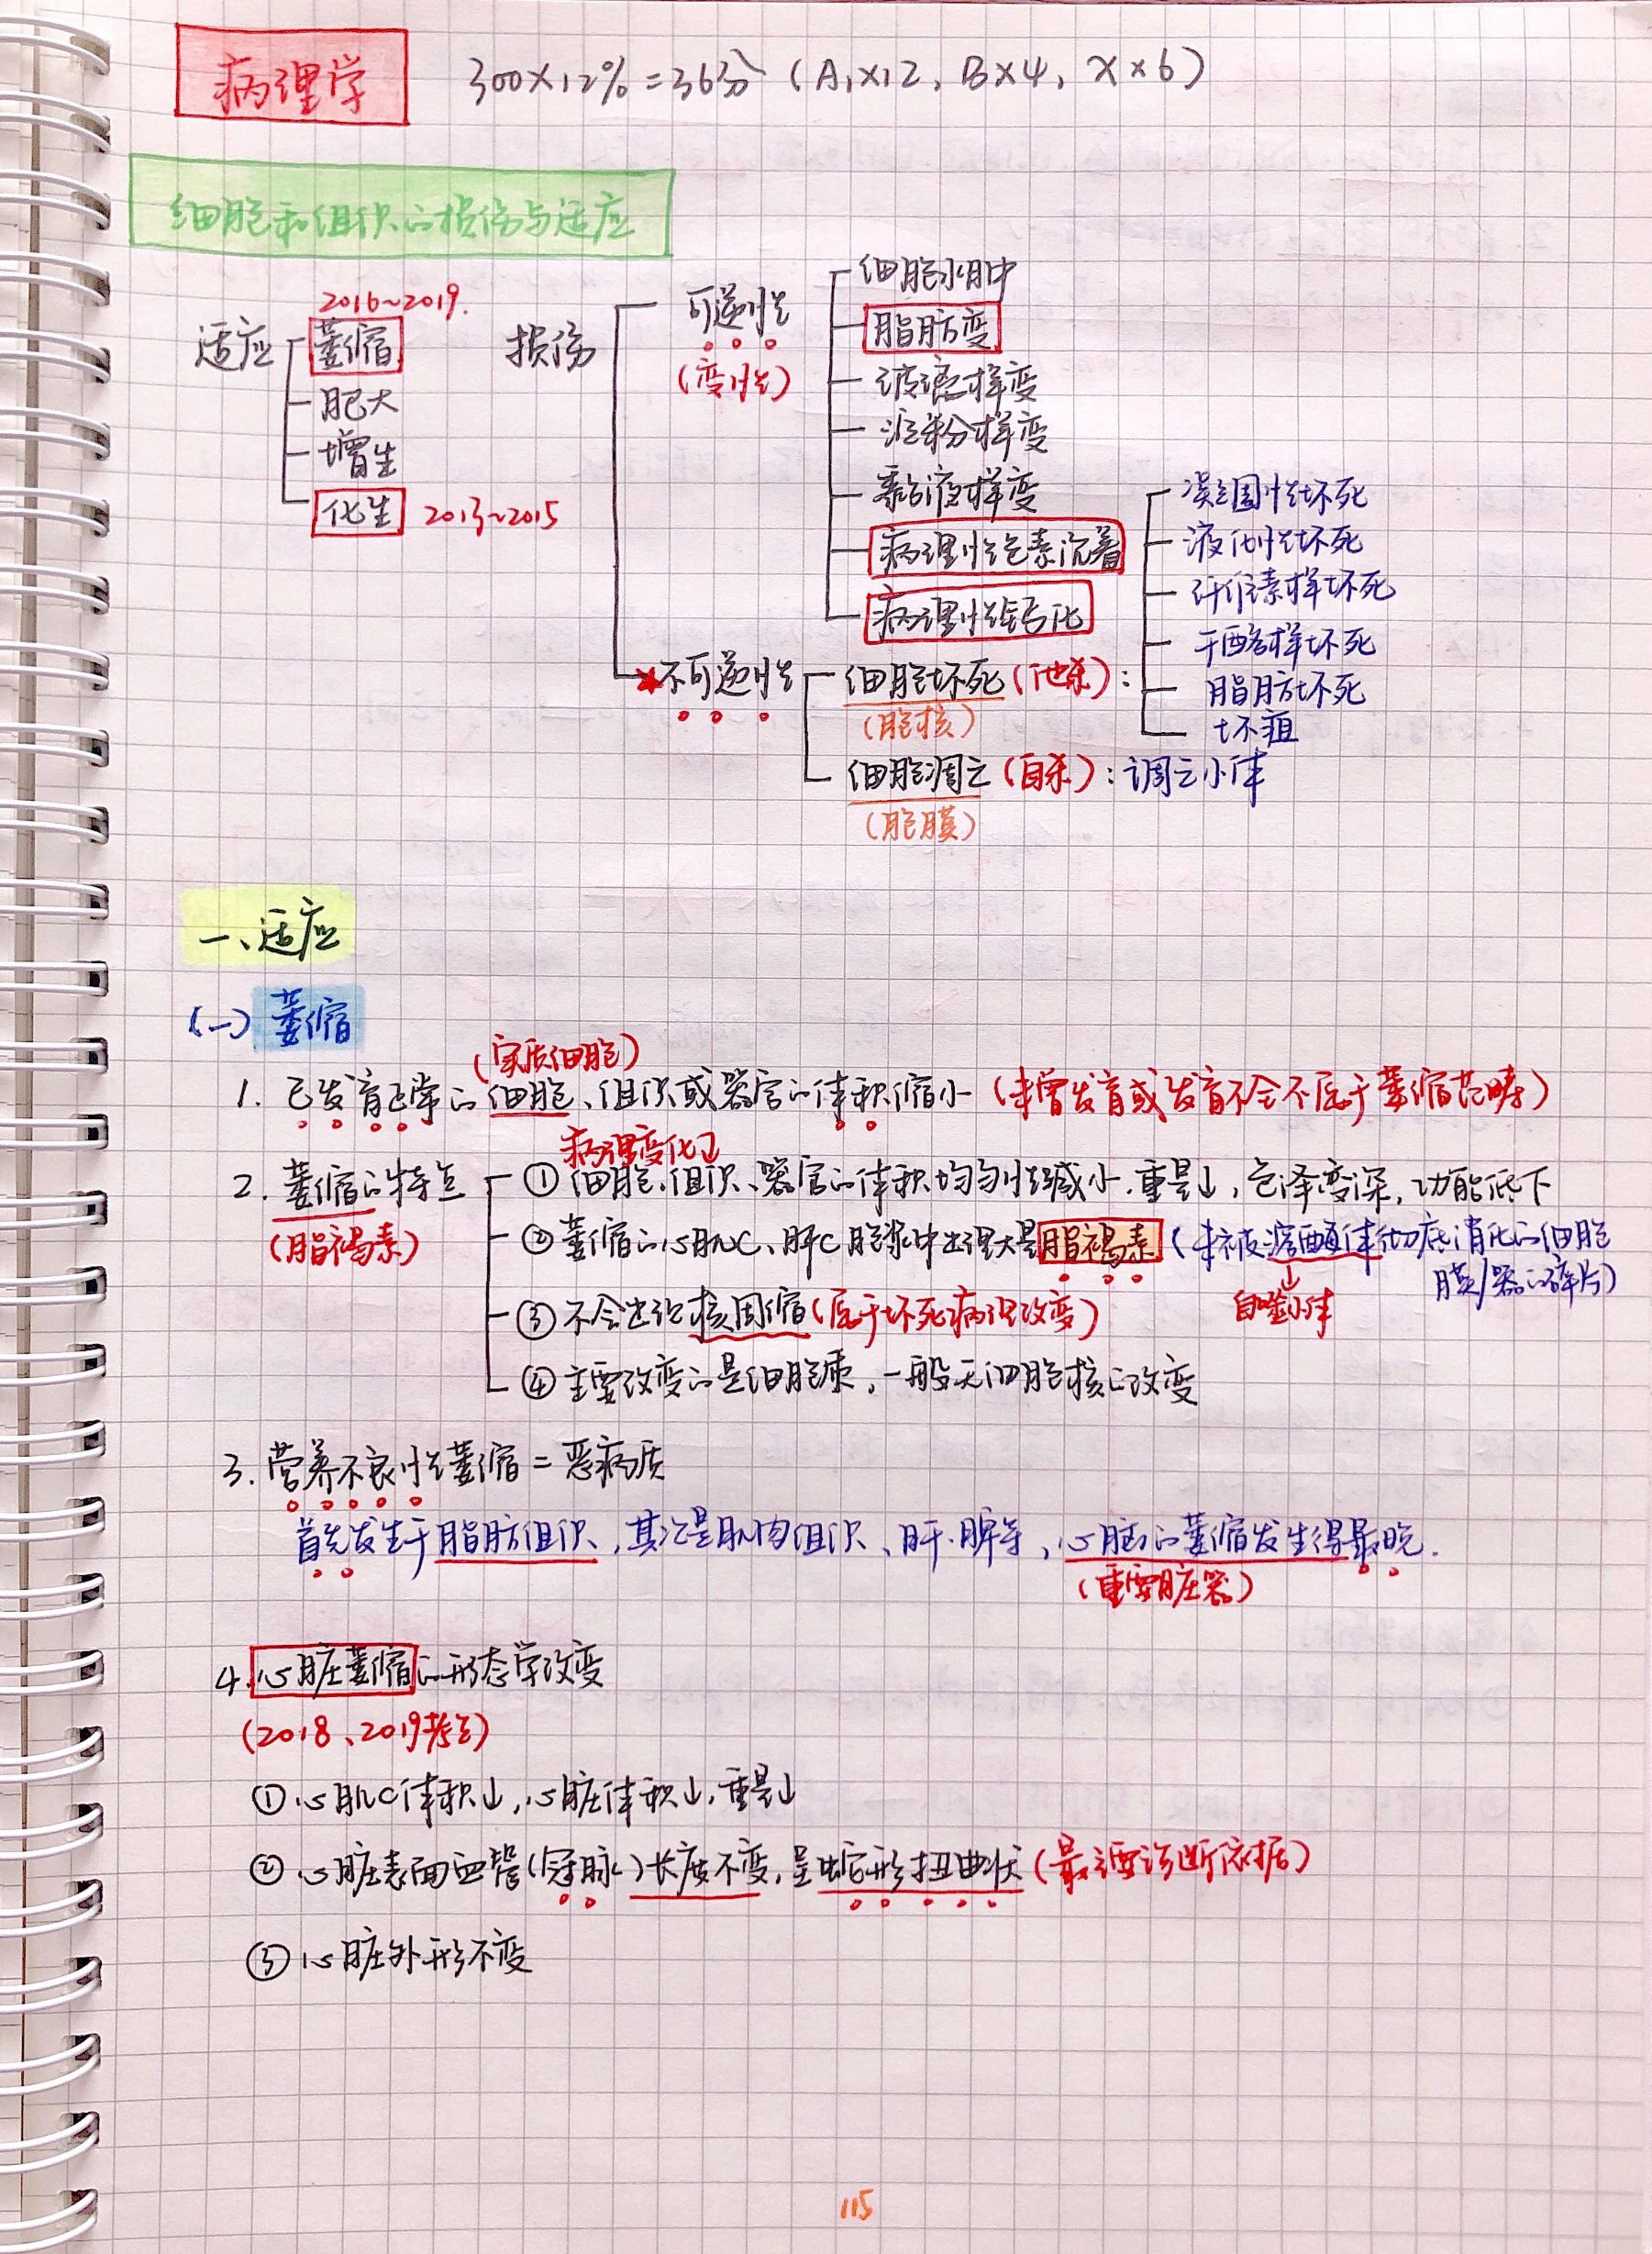 病理学 300×12%=36分 (A₁×12, B×4, X×6)
细胞和组织的损伤与适应
2016~2019.
适应
萎缩
肥大
增生
化生 2013~2015
损伤
可逆性
(变性)
细胞水肿
脂肪变
玻璃样变
淀粉样变
黏液样变
病理性色素沉着
病理性钙化
★不可逆性
细胞坏死(他杀):
(胞核)
凝固性坏死
液化性坏死
纤维素样坏死
干酪样坏死
脂肪坏死
坏疽
细胞凋亡(自杀):凋亡小体
(胞膜)
一、适应
(一) 萎缩
(实质细胞)
1. 已发育正常的细胞、组织或器官的体积缩小(未曾发育或发育不全不属于萎缩范畴)
病理变化
2. 萎缩的特点
(脂褐素)
①细胞、组织、器官的体积均匀性减小,重量↓,色泽变深,功能低下
②萎缩的心肌C、肝C胞浆中出现大量脂褐素(未被溶酶体彻底消化的细胞
膜/器的碎片)
↓
自噬小体
③不会出现核固缩(属于坏死病理改变)
④主要改变的是细胞质,一般无细胞核的改变
3. 营养不良性萎缩=恶病质
首先发生于脂肪组织,其次是肌肉组织、肝、脾等,心脑的萎缩发生得最晚.
(重要脏器)
4. 心脏萎缩的形态学改变
(2018、2019考点)
①心肌C体积↓,心脏体积↓,重量↓
②心脏表面血管(冠脉)长度不变,呈蛇形扭曲状(最主要诊断依据)
③心脏外形不变
115